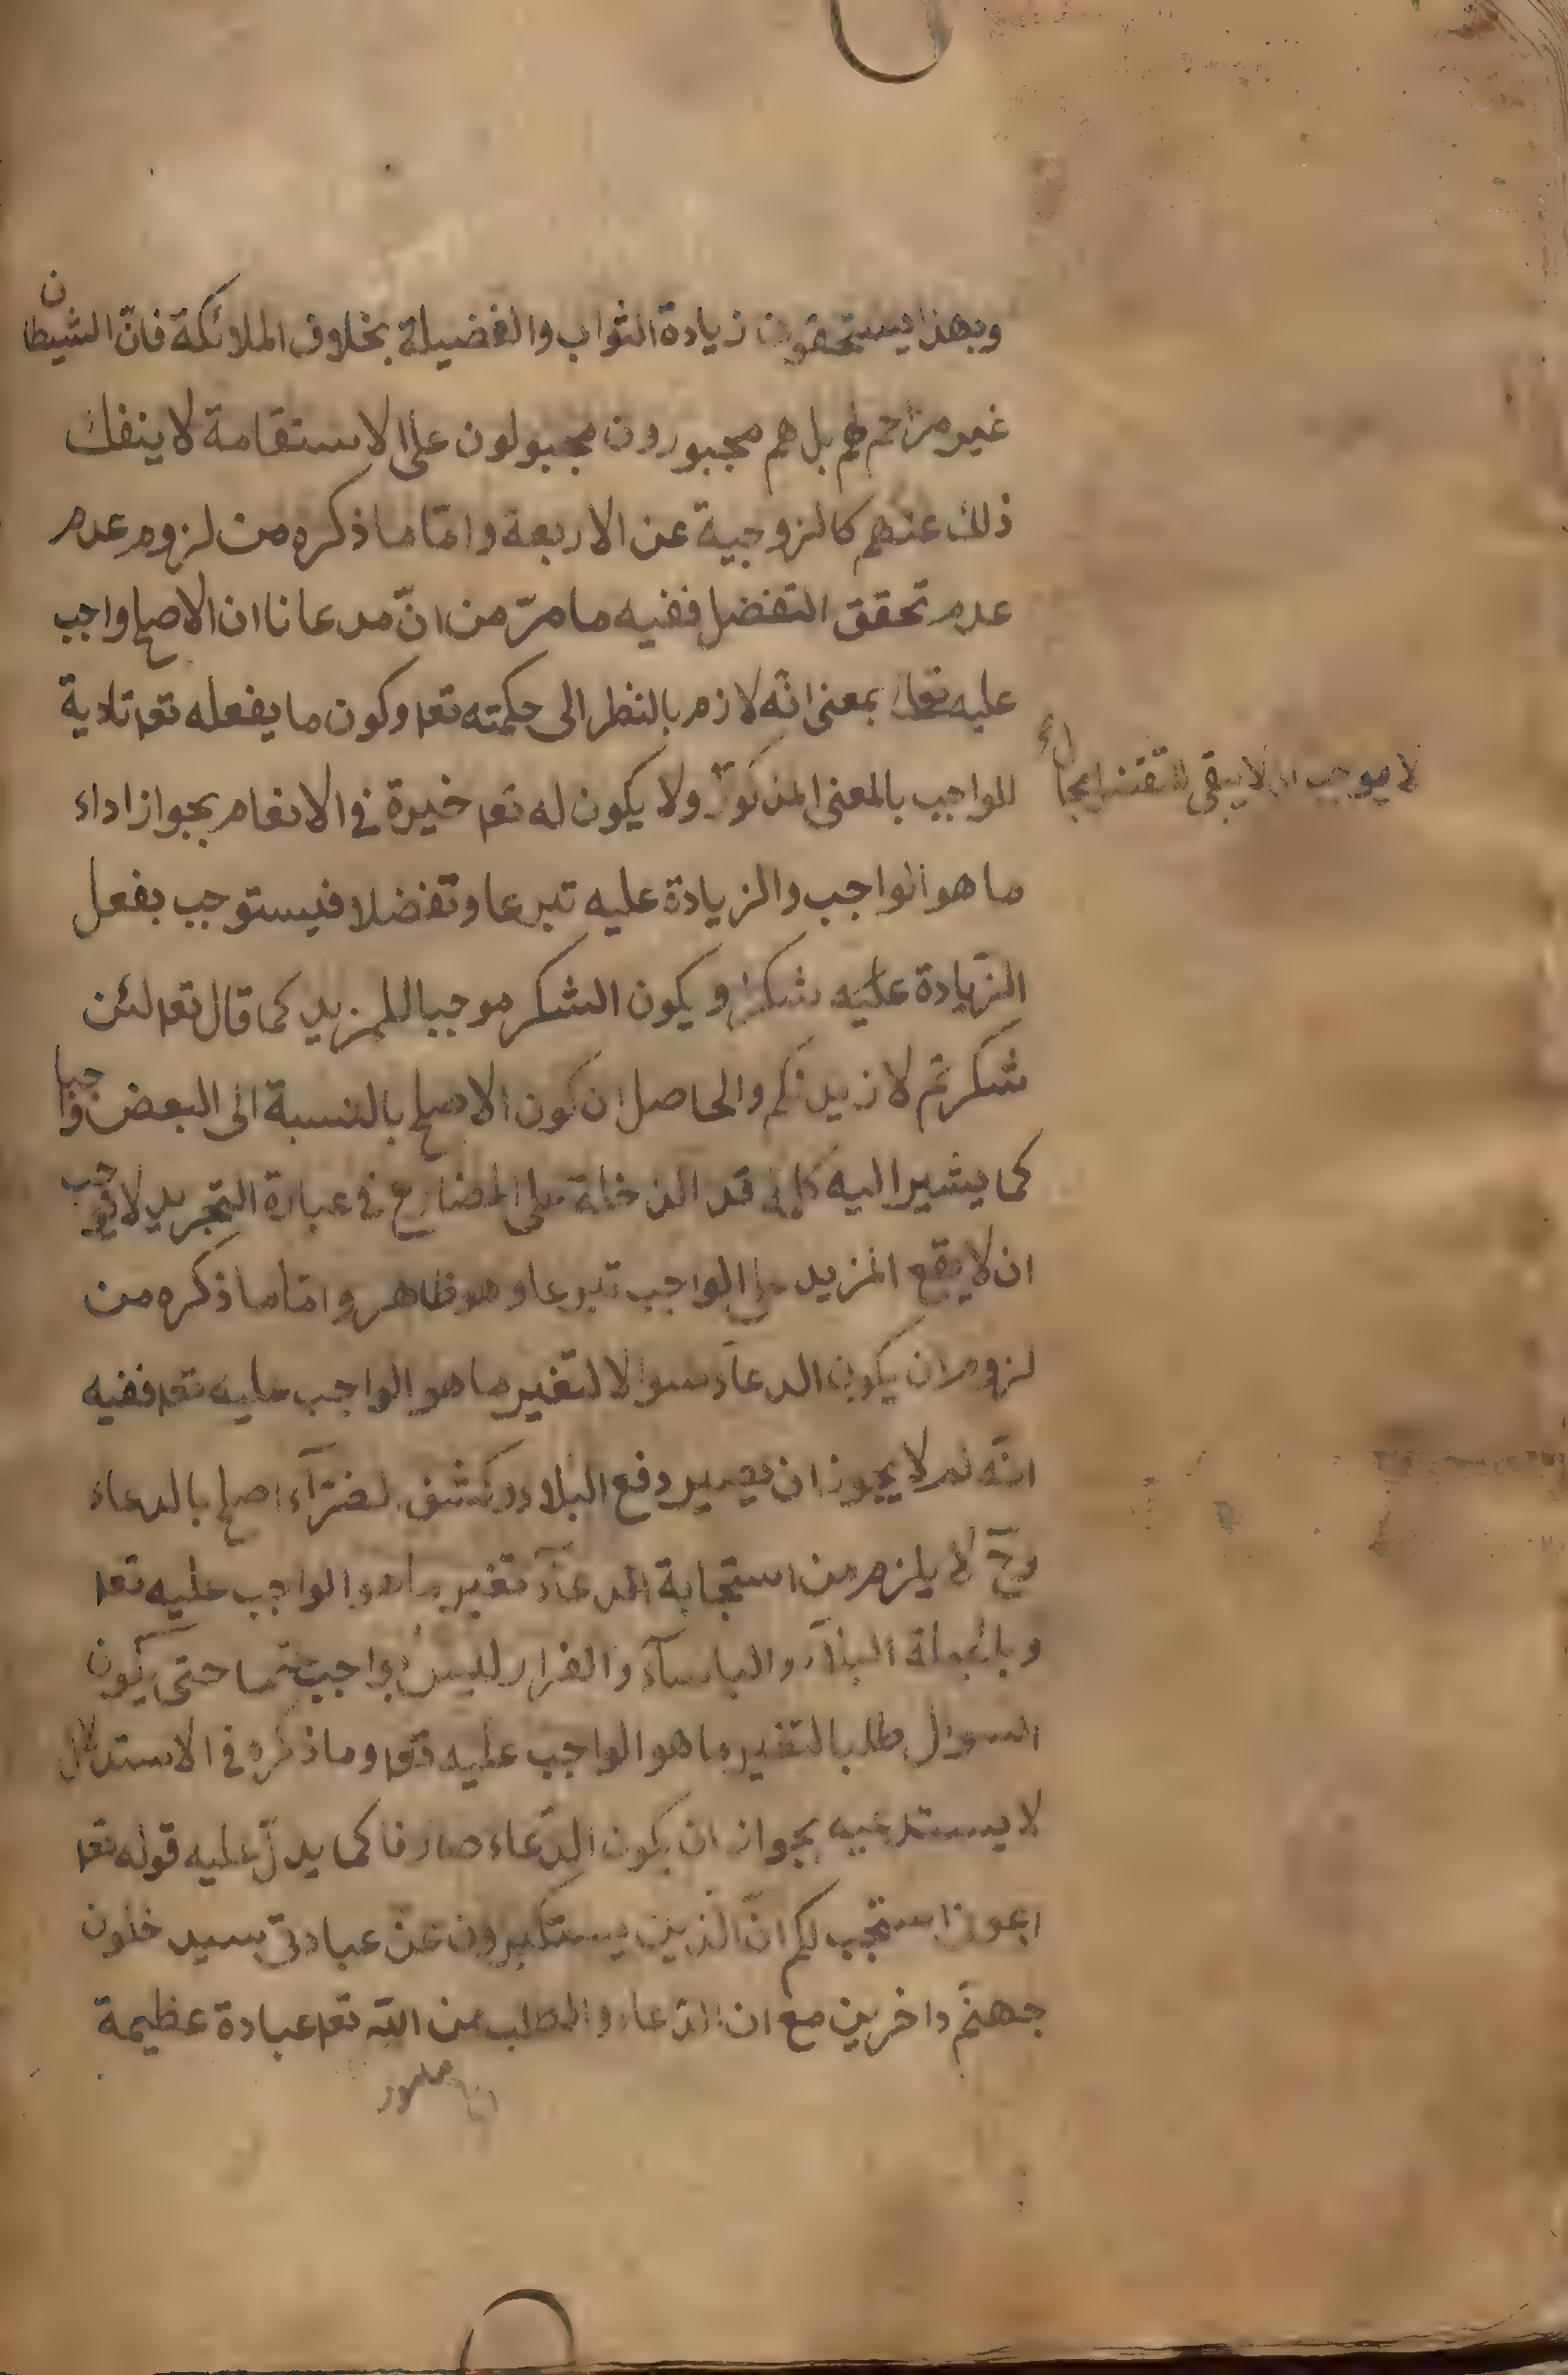 وبهذا يستحقون زيادة الثواب والفضيلة بخلاف الملائكة فانّ الشيطان
غير مزاحم لهم بل هم مجبورون مجبولون على الاستقامة لا ينفك
ذلك عنهم كالزوجية عن الاربعة وامّا ما ذكره من لزوم عدم
عدم تحقق التفضل ففيه ما مرّ من انّ مدعانا ان الاصلح واجب
عليه تعا بمعنى انّه لازم بالنظر الى حكمته تعا وكون ما يفعله تعا تادية
للواجب بالمعنى المذكور ولا يكون له تعا خيرة في الانعام بجواز اداء
لا يوجب ان لا يبقى للتفضل مجال
ما هو الواجب والزيادة عليه تبرعا وتفضلا فيستوجب بفعل
الزّيادة عليه شكرا ويكون الشكر موجبا للمزيد كما قال تعا لئن
شكرتم لازيدنكم والحاصل ان كون الاصلح بالنسبة الى البعض واجبا
كما يشير اليه كلمة قد الداخلة على المضارع في عبارة التجريد لا يوجب
ان لا يقع المزيد على الواجب تبرعا وهو ظاهر وامّا ما ذكره من
لزوم ان يكون الدعآء سوالا لتغير ما هو الواجب عليه تعا ففيه
انّه لم لا يجوز ان يصير دفع البلاء وكشف الضرّآء اصلح بالدعاء
وحّ لا يلزم من استجابة الدعآء تغير ما هو الواجب عليه تعا
وبالجملة البلآء والباسآء والضرار ليس بواجب حتما حتى يكون
السوال طلبا لتغير ما هو الواجب عليه تعا وما ذكره في الاستدلال
لا يستدعيه بجواز ان يكون الدّعاء صارفا كما يدلّ عليه قوله تعا
ادعوني استجب لكم انّ الّذين يستكبرون عن عبادتي سيدخلون
جهنّم داخرين مع ان الدّعاء والطلب من اللّه تعا عبادة عظيمة